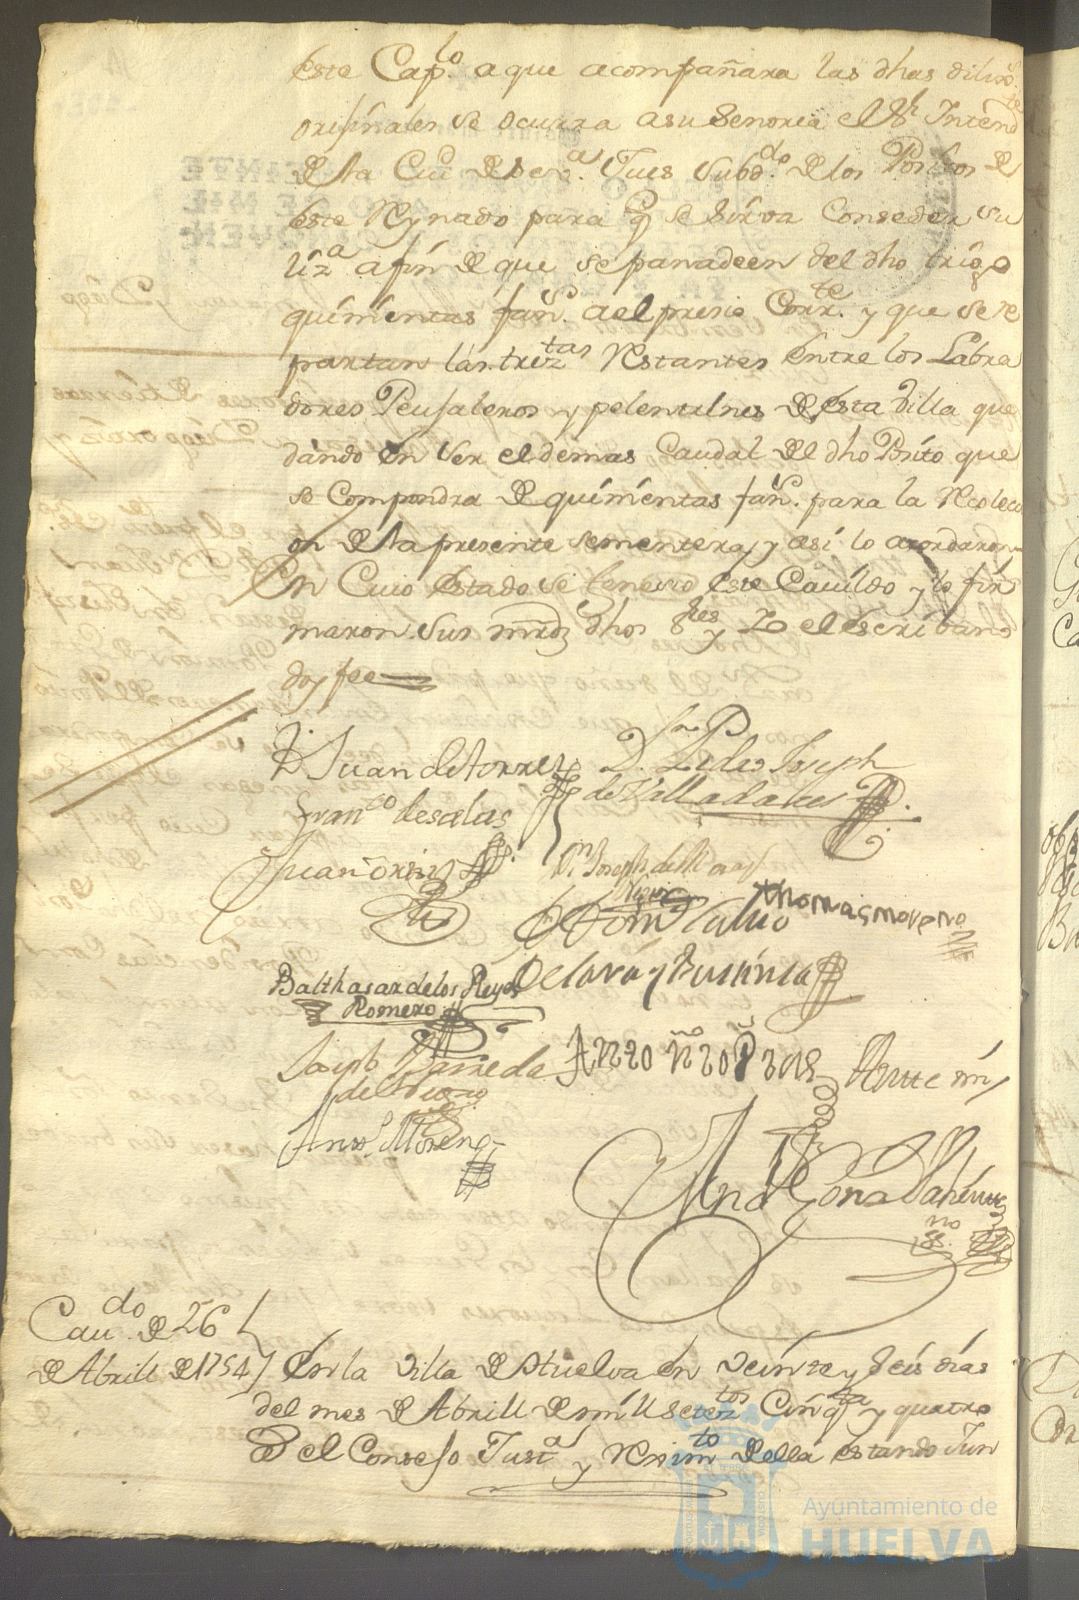 este Cap.lo a que acompañara las dhas dilix.s
orijinales se ocurra a su Señoria el Sr. Intend.te
de la Ciud de Sev.a Jues Subd.do de los Positos de
este Reynado para q se sirva Conseder su
liz.a a fin de que se panadeen del dho trigo
quinientas fan.s a el presio Corr.te y que se re
partan las trez.tas Restantes entre los Labra
dores Peujaleros y pelentrines de esta Villa que
dando en ser el demas Caudal del dho Psito que
se Compondra de quinientas fan.s para la Recolec
on de la presente sementera, y asi lo acordaron
En Cuio estado se feneció este Cavildo y lo fir
maron sus mrds dhos Sres y Yo el escribano
doy fee
D. Juan de torres
D. Pedro Joseph
de Valladares
Fran.co de salas
Juan
Dn Joseph de
thomas moreno
Balthasar de los Reyes
Romero
Joseph
Ante mi
Moreno
Cau.do de 26
de Abrill de 1754
En la Villa de Huelva en veinte y seis dias
del mes de Abrill de mill setez.tos Cinq.ta y quatro
el Consejo Just.a y Rexim.to de ella estando Jun
Ayuntamiento de
HUELVA